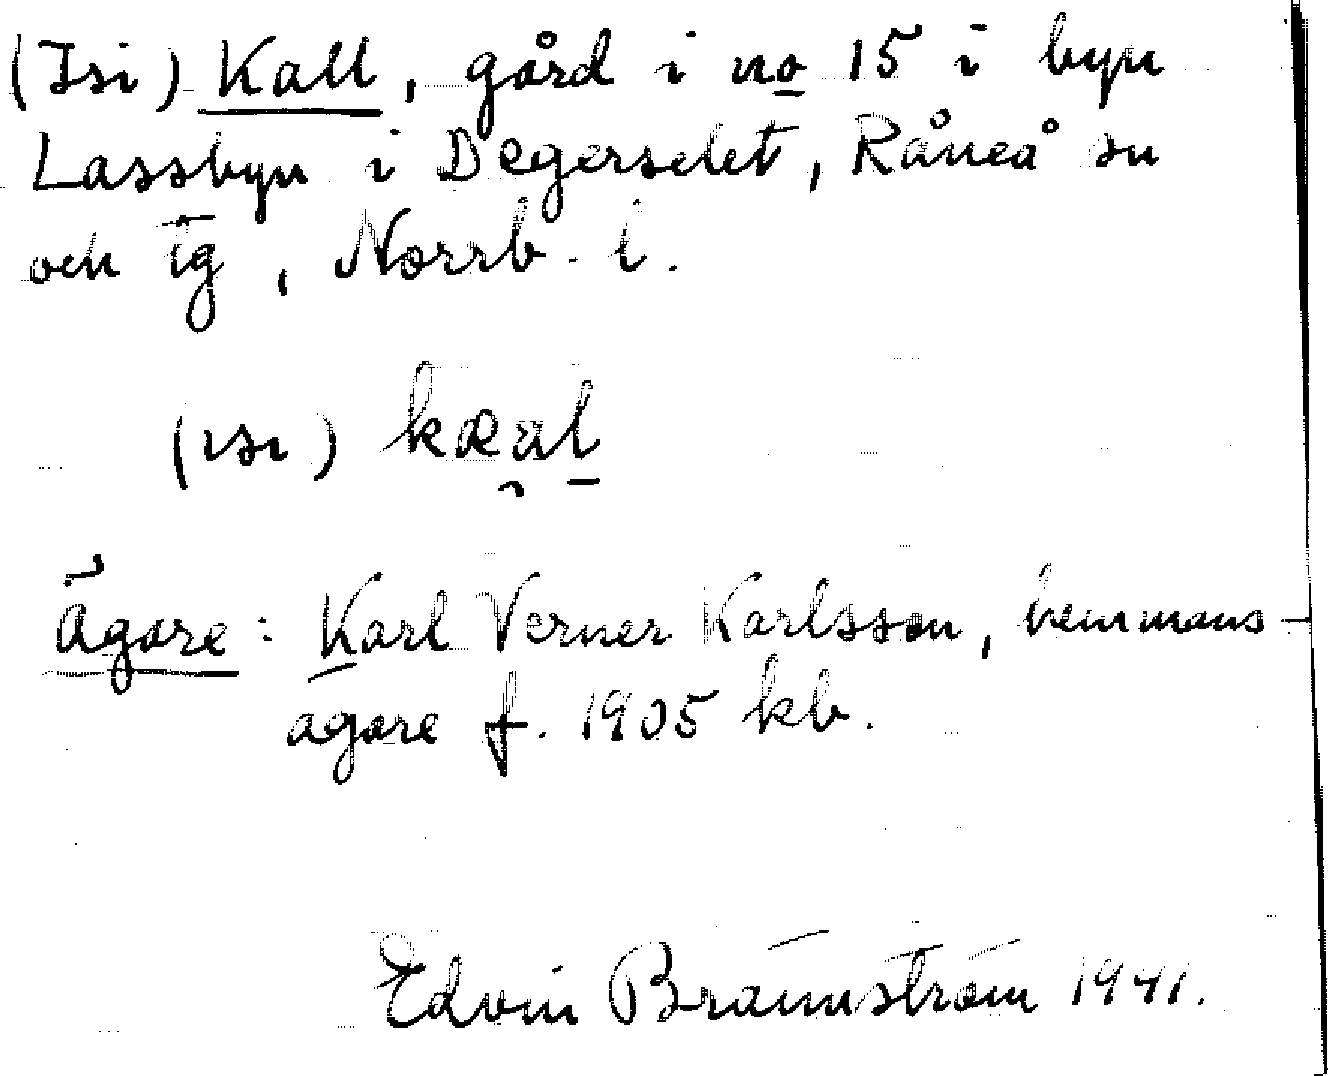 (Isi) Kall, gård i no 15 i byn
Lassbyn i Degerselet, Råneå sn
och tg, Norrb. l.
(ısı)
Ägare: Karl Verner Karlsson, hemmans-
ägare f. 1905 kb.
Edvin Brännström 1941.